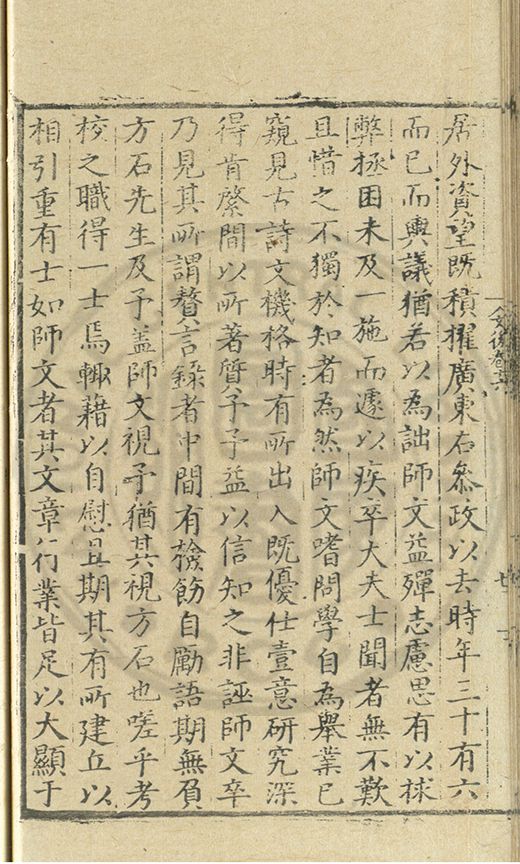 居外資望既積擢廣東右叅政以去時年三十有六
而已而輿議猶若以為詘師文益殫志慮思有以捄
弊拯困未及一施而遽以疾卒大夫士聞者無不歎
且惜之不獨於知者為然師文嗜問學自為舉業已
窺見古詩文機格時有所出入既優仕壹意研究深
得肯綮間以所著質予予益以信知之非誣師文卒
乃見其所謂贅言錄者中間有檢飭自勵語期無負
方石先生及予盖師文視予猶其視方石也嗟乎考
校之職得一士焉輙藉以自慰且期其有所建立以
相引重有士如師文者其文章行業皆足以大顯于